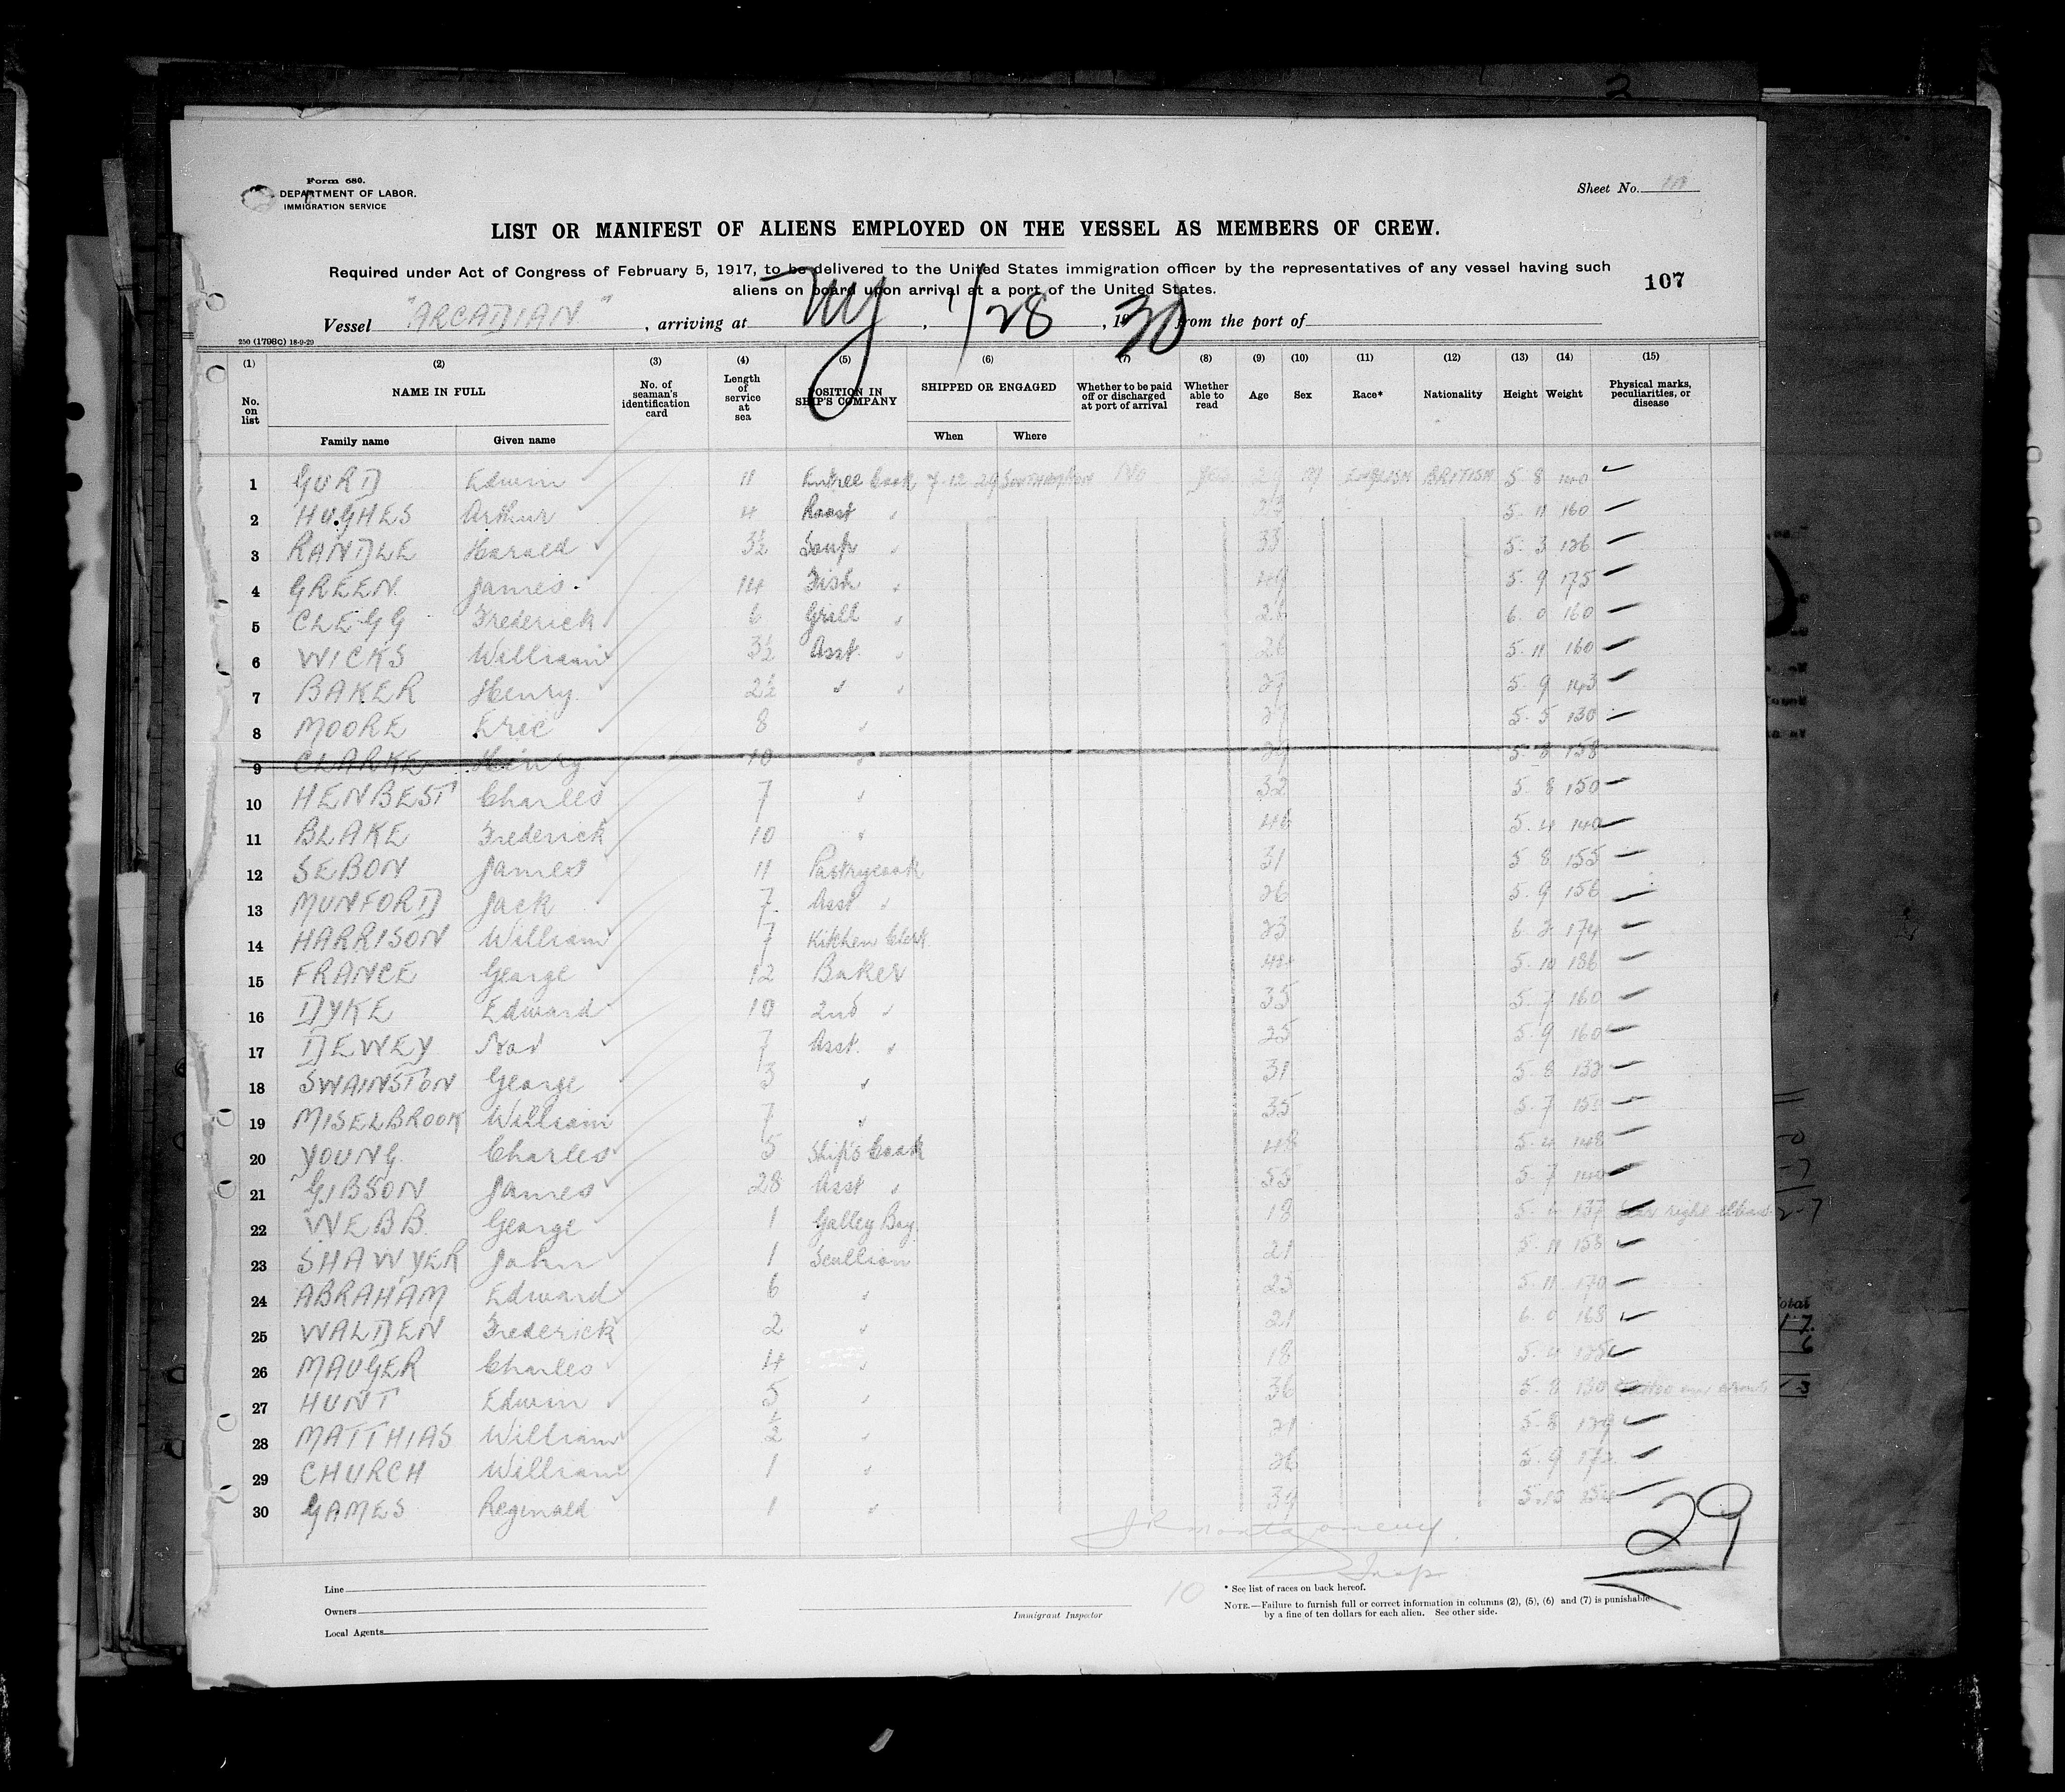 Form 680.
DEPARTMENT OF LABOR.
IMMIGRATION SERVICE
Sheet No.
LIST OR MANIFEST OF ALIENS EMPLOYED ON THE VESSEL AS MEMBERS OF CREW.
Required under Act of Congress of February 5, 1917, to be delivered to the United States immigration officer by the representatives of any vessel having such
aliens on board upon arrival at a port of the United States.
107
Vessel "ARCADIAN", arriving at NY, 1/28, 1930 from the port of
250 (1798c) 18-9-29
(1) (2) (3) (4) (5) (6) (7) (8) (9) (10) (11) (12) (13) (14) (15)
No. on list NAME IN FULL Family name Given name No. of seaman's identification card Length of service at sea POSITION IN SHIP'S COMPANY SHIPPED OR ENGAGED When Where Whether to be paid off or discharged at port of arrival Whether able to read Age Sex Race* Nationality Height Weight Physical marks, peculiarities, or disease
1 GURD Edwin 11 Entree Cook 7-12-29 SOUTHAMPTON No yes 29 M ENGLISH BRITISH 5 8
2 HUGHES Arthur 4 Roast " 5-11 160
3 RANDLE Harold 3½ Soup " 33 5-3 126
4 GREEN James 14 Fish " 49 5-9 175
5 CLEGG Frederick 6 Grill " 26 6-0 160
6 WICKS William 3½ Asst. " 26 5-11 160
7 BAKER Henry 2½ " " 27 5-9 143
8 MOORE Eric 8 " 5-5 130
9 CLARKE Henry 10 " 29 5-8 158
10 HENBEST Charles 7 " 32 5 8 150
11 BLAKE Frederick 10 " 46 5-4 140
12 SEBON James 11 Pastrycook 31 5 8 155
13 MUNFORD Jack 7 Asst " 26 5-9 156
14 HARRISON William 7 Kitchen Clerk 23 6-2 174
15 FRANCE George 12 Baker 5-10 186
16 DYKE Edward 10 2nd " 35 5-7 160
17 DEWEY 7 Asst. " 25 5 9 160
18 SWAINSTON George 3 " 31 5-8 132
19 MISELBROOK William 7 " 35 5-7
20 YOUNG Charles 5 Ship's Cook 48 5-4 148
21 GIBSON James 28 Asst " 55 5-7 140
22 WEBB George 1 Galley Boy 18 137 right elbow
23 SHAWYER John 1 Scullion 21 5-11 158
24 ABRAHAM Edward 6 " 25 5-11 170
25 WALDEN Frederick 2 " 21 6-0 168
26 MAUGER Charles 4 " 18 5-4
27 HUNT Edwin 5 " 36 5-8 130
28 MATTHIAS William ½ " 21 5-8 129
29 CHURCH William 1 " 26 5-9 172
30 GAMES Reginald 1 " 39 5-10 154
J R Montgomery
Insp
29
10
Line
Owners
Local Agents
Immigrant Inspector
* See list of races on back hereof.
NOTE.—Failure to furnish full or correct information in columns (2), (5), (6) and (7) is punishable
by a fine of ten dollars for each alien. See other side.